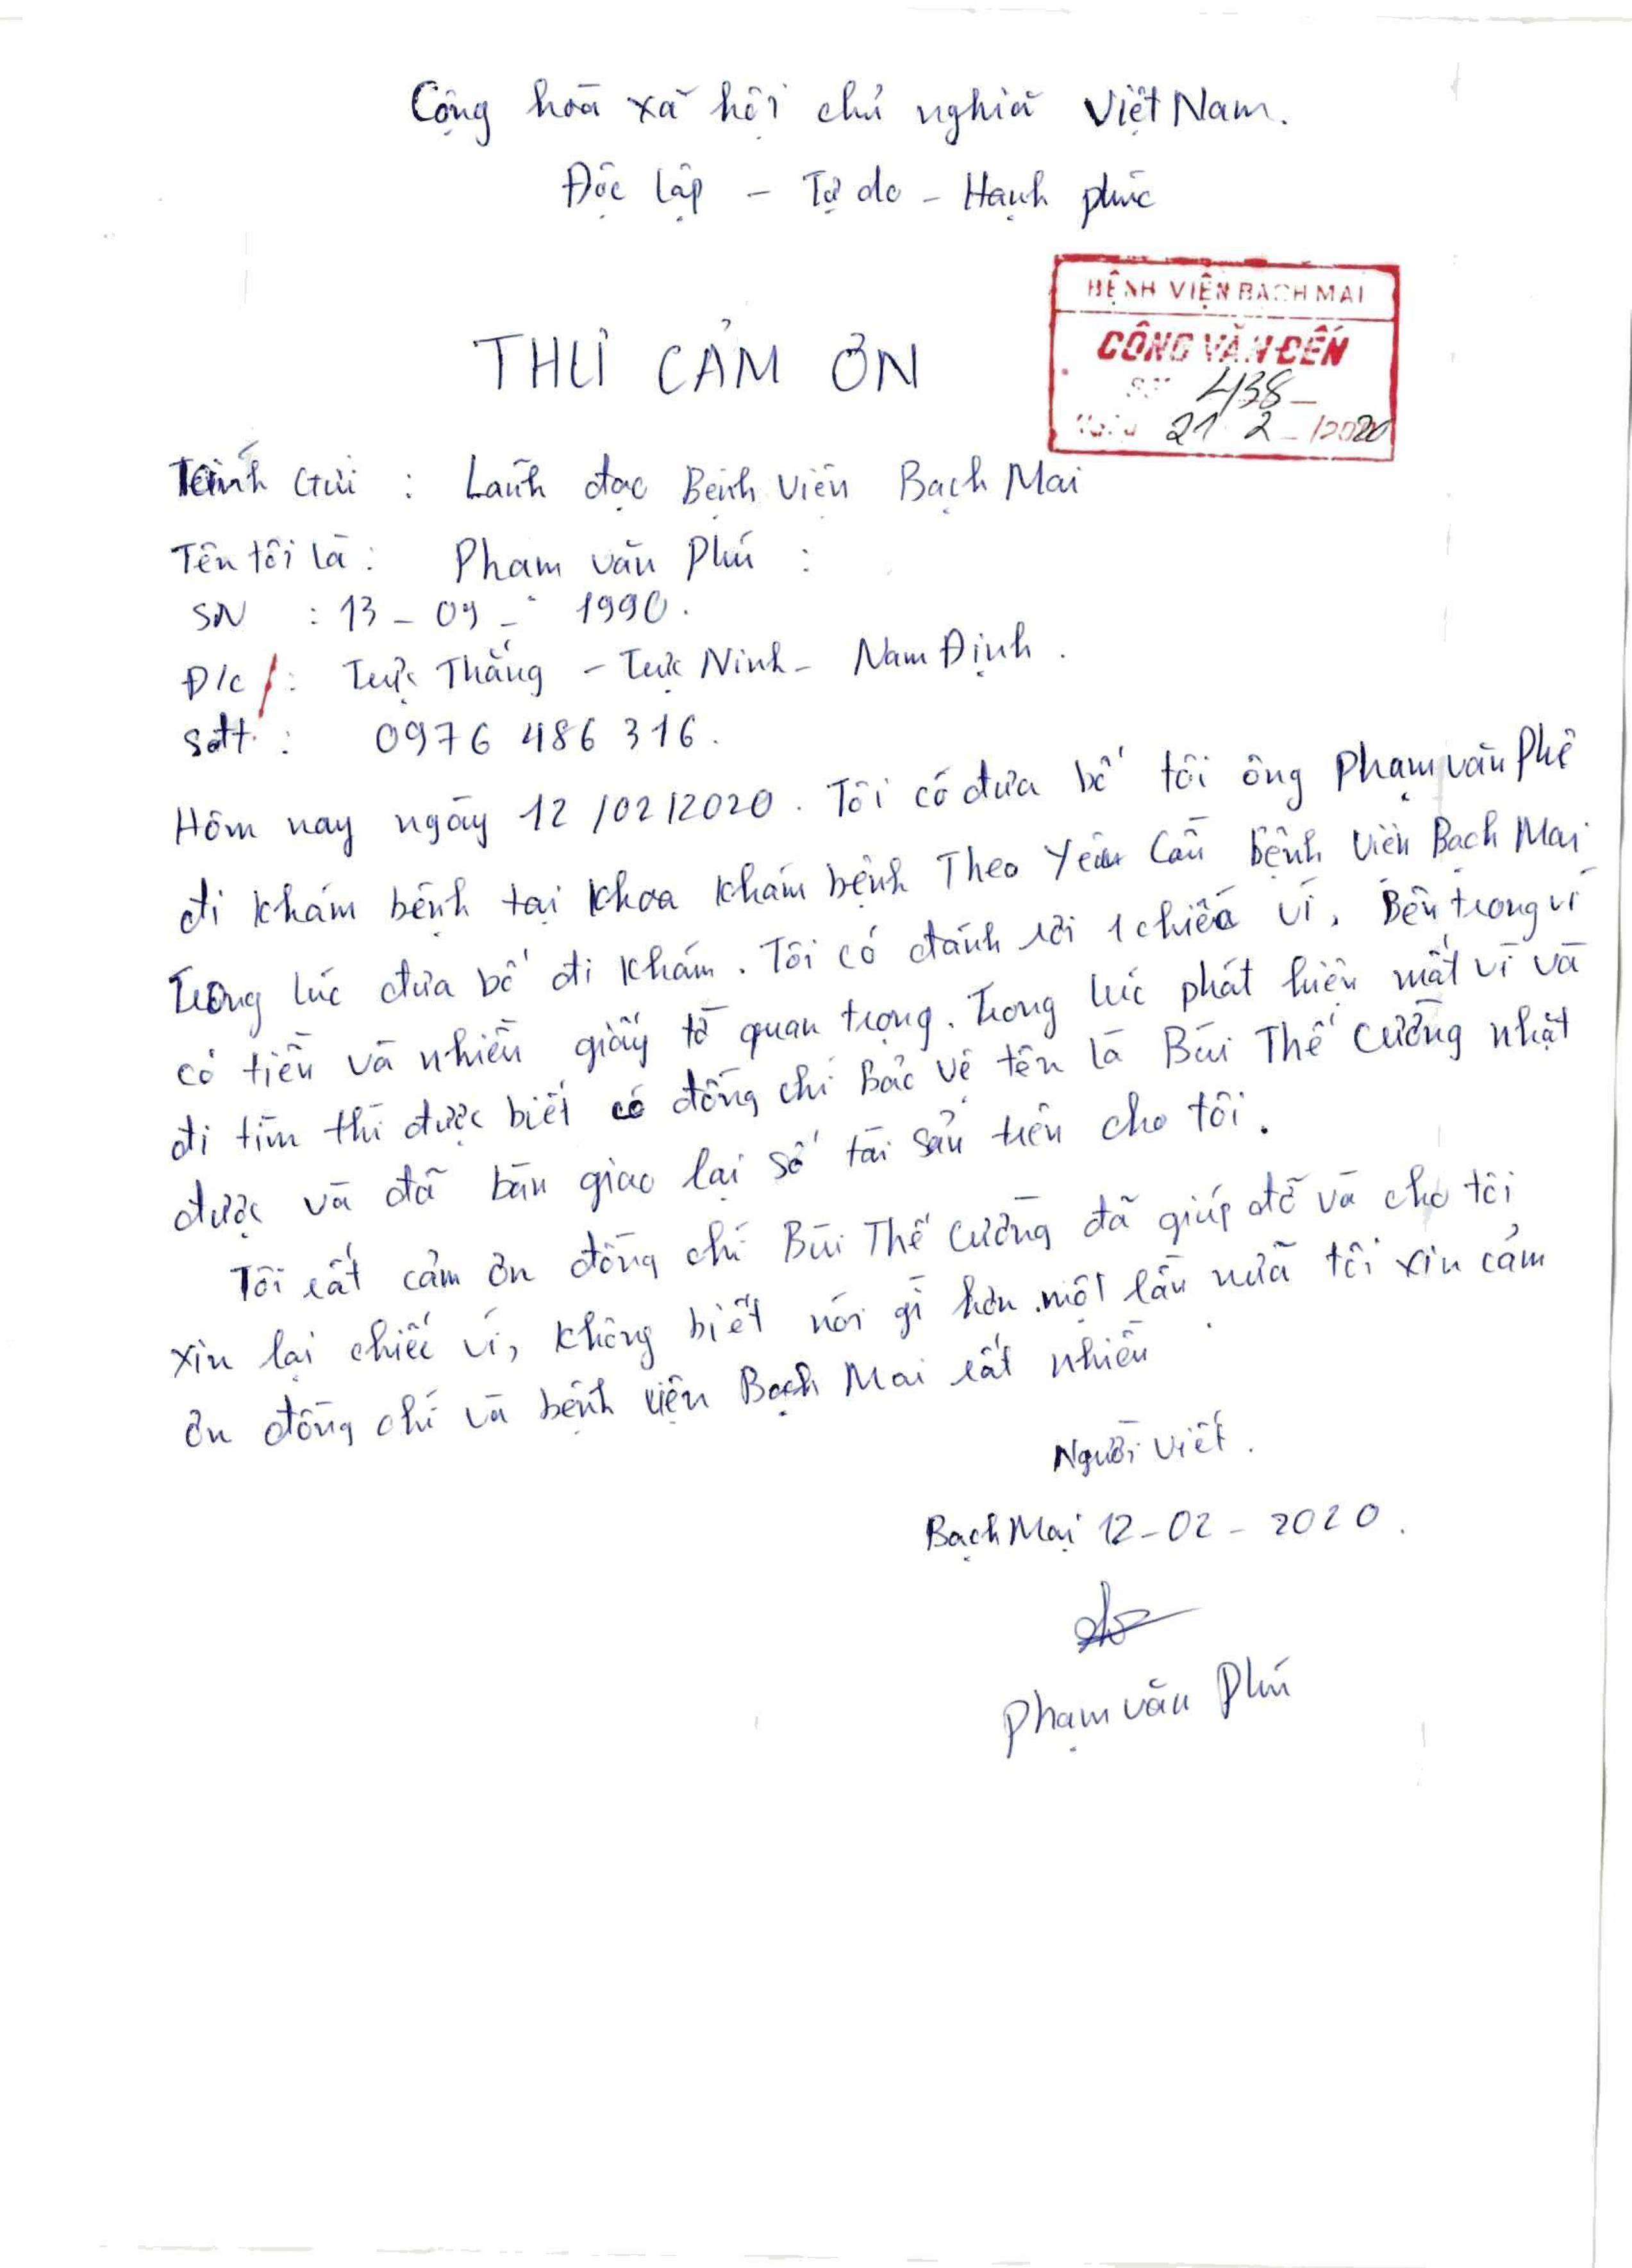 Cộng hoà xã hội chủ nghiã Việt Nam.
Độc lập - Tự do - Hạnh phúc
BỆNH VIỆN BẠCH MAI
CÔNG VĂN ĐẾN
Số 438
Ngày 21 2 /2020
THƯ CẢM ƠN
Kính Gửi : Lãnh đạo Bệnh viện Bạch Mai
Tên tôi là : Pham văn Phú :
SN : 13 - 09 - 1990.
Đ/c : Trực Thắng - Trực Ninh - Nam Định.
Sđt : 0976 486 316.
Hôm nay ngày 12/02/2020. Tôi có đưa bố tôi ông Phạm văn Phê
đi khám bệnh tại khoa khám bệnh Theo yêu Cầu bệnh viện Bạch Mai
trong lúc đưa bố đi khám. Tôi có đánh rơi 1 chiếc ví. Bên trong ví
có tiền và nhiều giấy tờ quan trọng. Trong lúc phát hiện mất ví và
đi tìm thì được biết có đồng chí bảo vệ tên là Bùi Thế Cường nhặt
được và đã bàn giao lại số tài sản trên cho tôi.
Tôi rất cảm ơn đồng chí Bùi Thế Cường đã giúp đỡ và cho tôi
xin lại chiếc ví, không biết nói gì hơn một lần nữa tôi xin cảm
ơn đồng chí và bệnh viện Bạch Mai rất nhiều
Người viết.
Bạch Mai 12-02-2020.
Phạm văn Phú